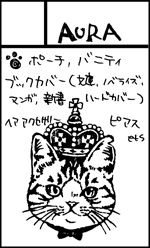 AURA
ポーチ, バニティ
ブックカバー(文庫, バライズ,
マンガ, 新書 ハードカバー)
ヘアアクセサリ ピアス
ets